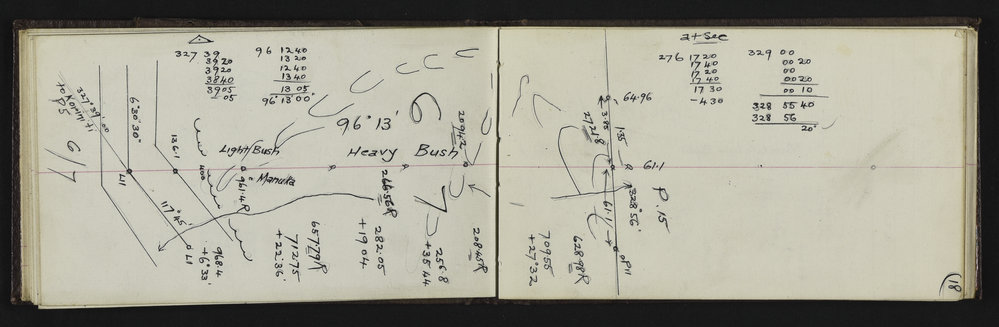 327 39
39 20
39 20
38 40
39 05
.05
96 12 40
13 20
12 40
13 40
13 05
96° 13' 00"
96° 13'
Light Bush
Heavy Bush
Manuka
6° 30' 30"
136.1
400
961.4R
327° 39' 00
to Kommiti
P5
6/7
L1
117° 45'
L1
968.4
+6° 33'
65729R
71275
+22° 36'
26656R
282.05
+19 04
2094.2
256.8
+35.44
28845R
at Sec
276 17 20
17 40
17 20
17 40
17 30
-4 30
329 00
00 20
00
00 20
00 10
328 55 40
328 56
20"
64.96
3.85
135
2721.8
R
61.1
328° 56'
P. 15
61.1
OP11
62898R
70955
+27° 32
18